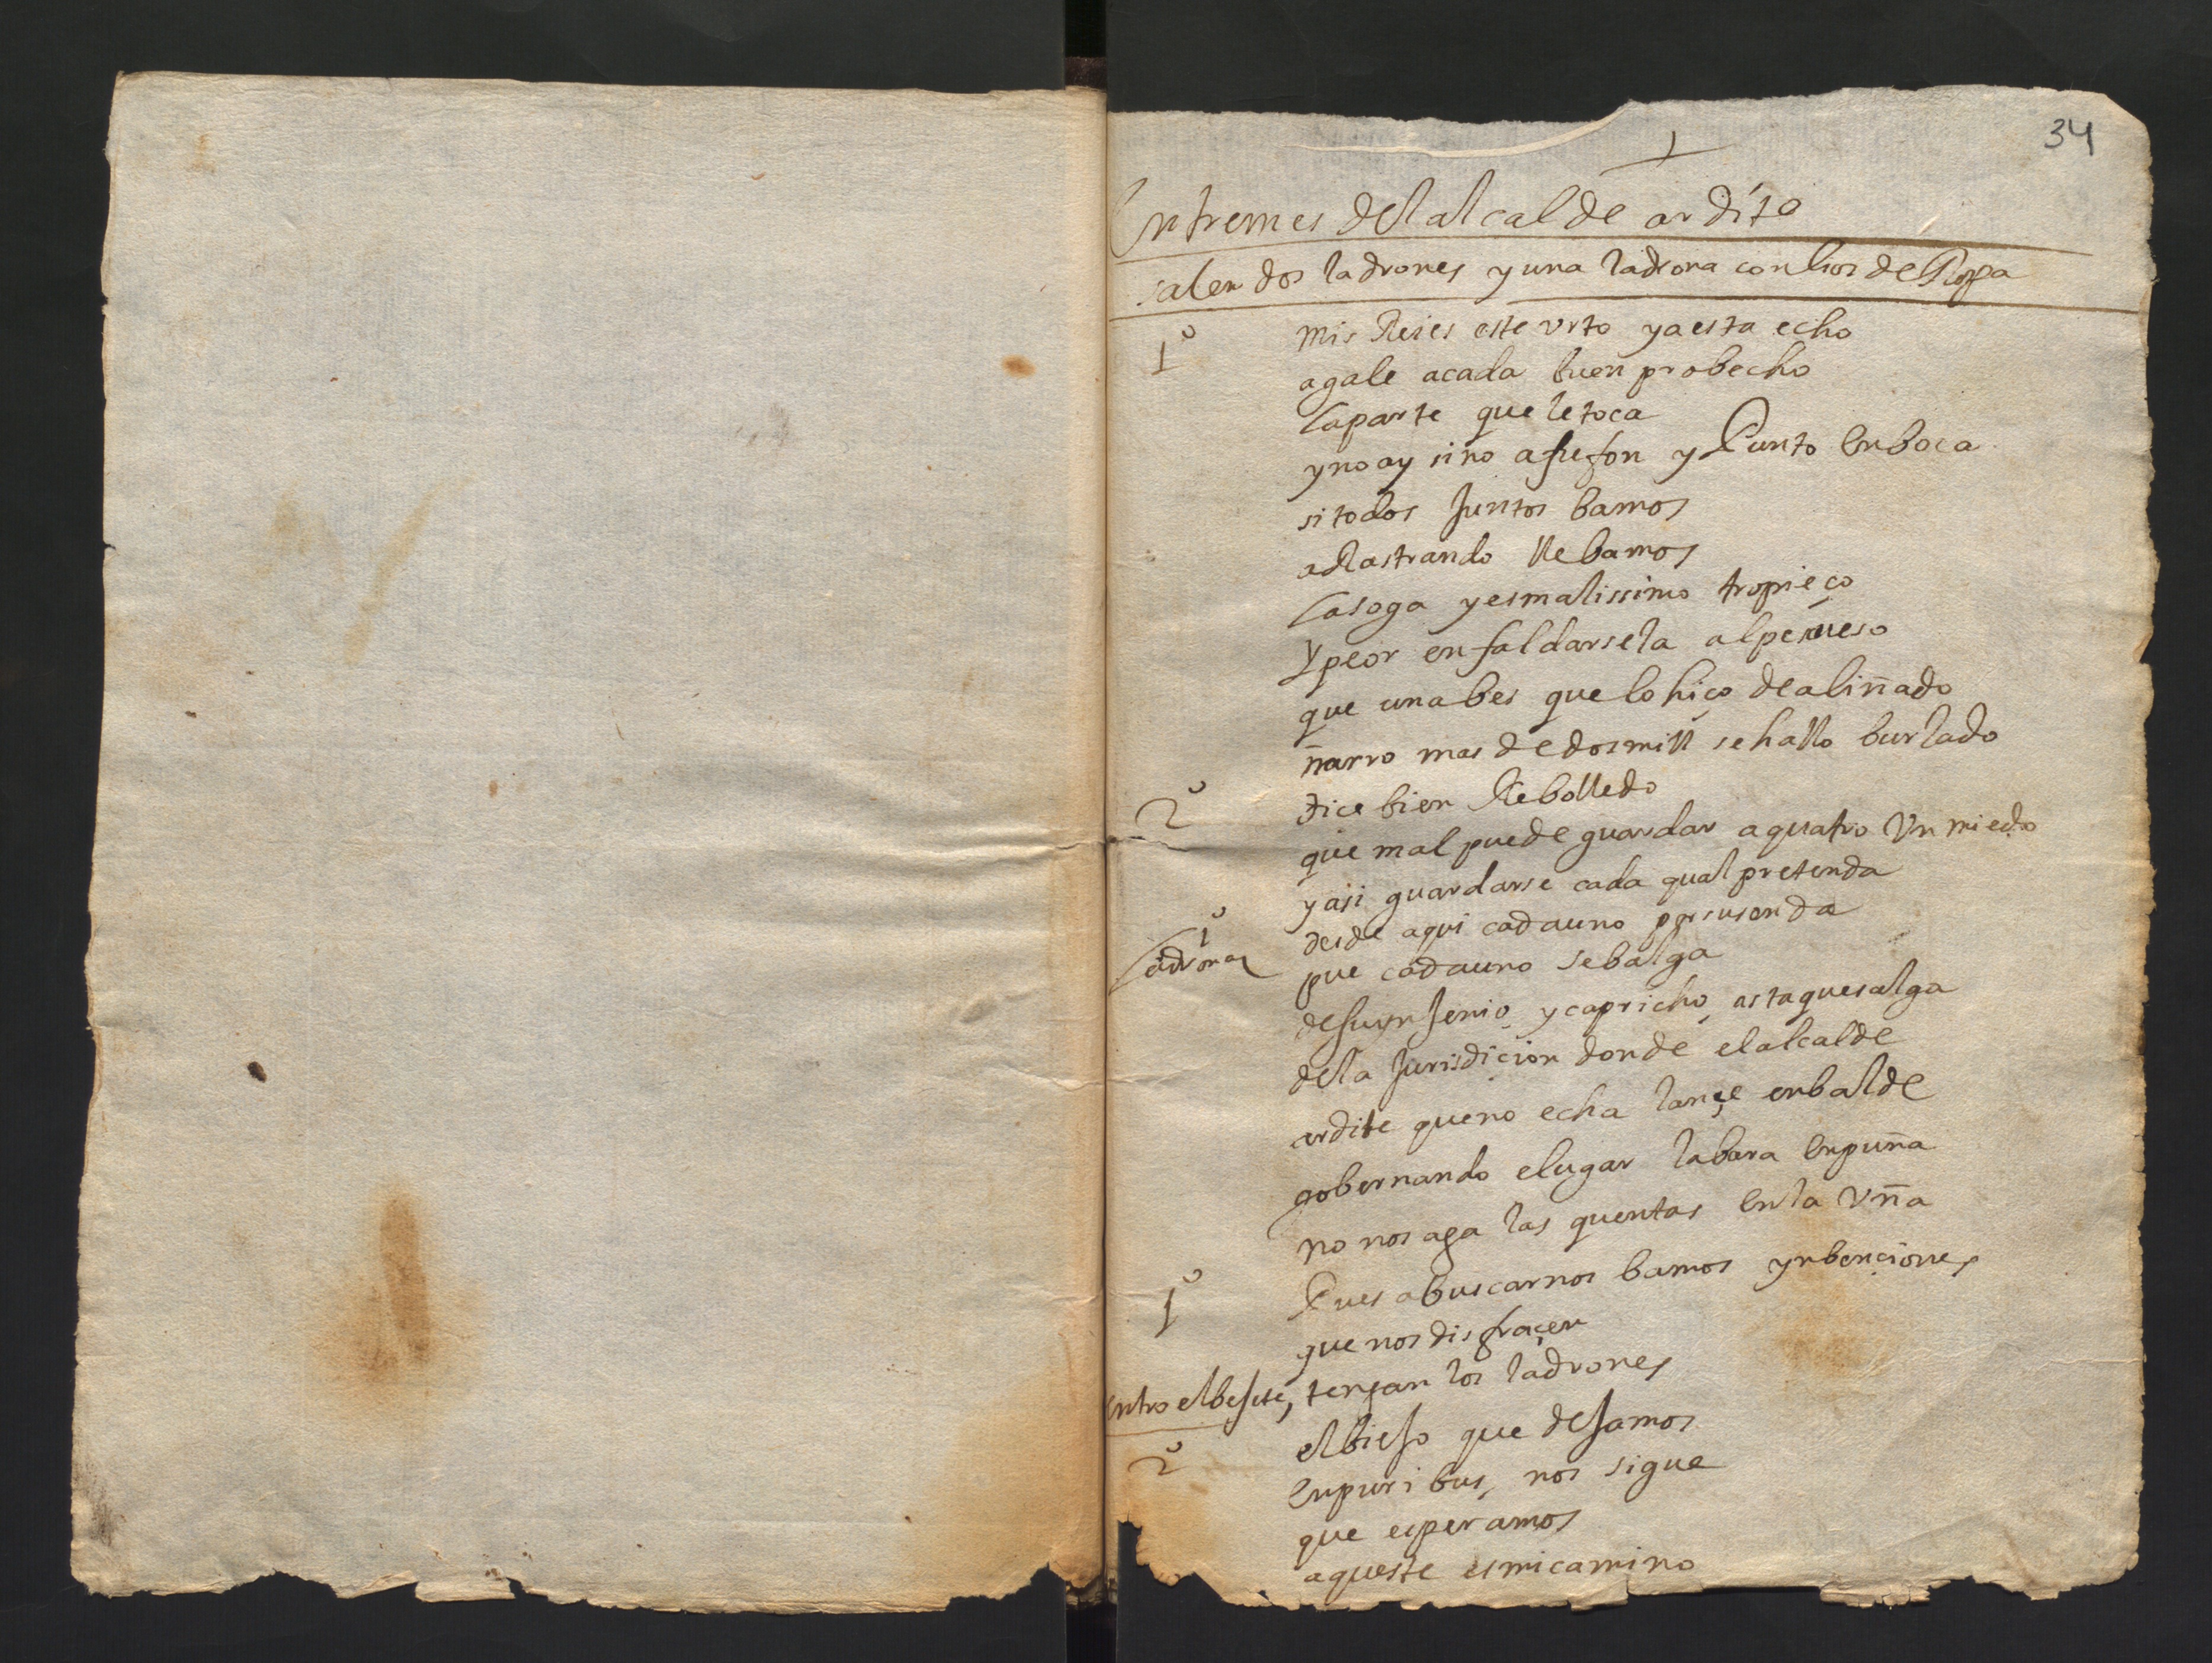 34
Entremes del alcalde ardite
salen dos ladrones y una ladrona con lios de Ropa
1º mis Reies este urto ya esta echo
agale a cada buen probecho
la parte que le toca
y no ay sino afufon y Punto en boca
si todos Juntos bamos
aRastrando llebamos
la soga y es malissimo tropieço
Y peor enfaldarsela al pesqueso
que una bes que lo hiço dealiñado
ñarro mas de dos mill se hallo burlado
2º dice bien Rebolledo
que mal puede guardar a quatro Vn miedo
y asi guardarse cada qual pretenda
desde aqui cada uno por su senda
1º ladrona pue cada uno se balga
de su ynJenio y capricho asta que salga
de la Jurisdiçion donde el alcalde
ardite que no echa lançe enbalde
gobernando el lugar la bara enpuña
no nos aga las quentas en la Vña
1º Pues a buscarnos bamos ynbençiones
que nos disfraçen
entro elbeJete, tengan los ladrones
2º el bieJo que deJamos
en puribus, nos sigue
que esperamos
aqueste es mi camino